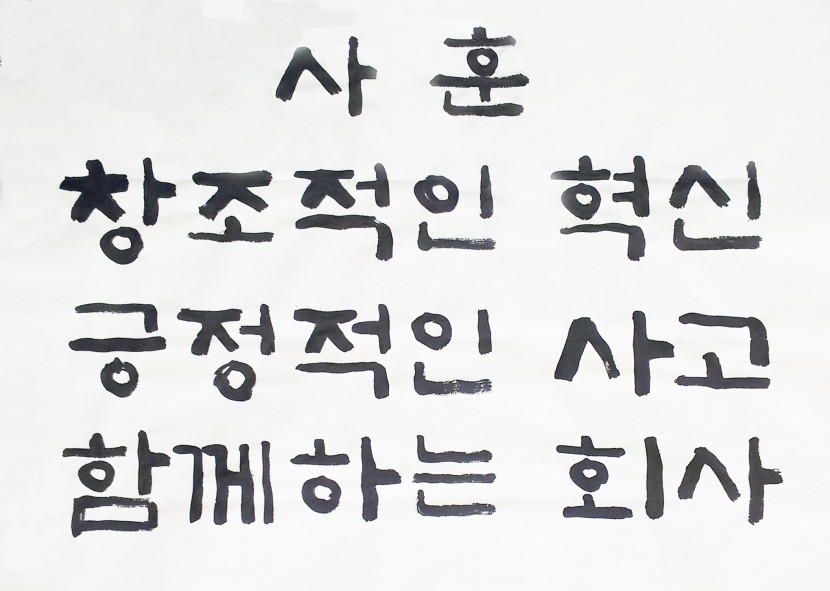 사 훈
창조적인 혁신
긍정적인 사고
함께하는 회사